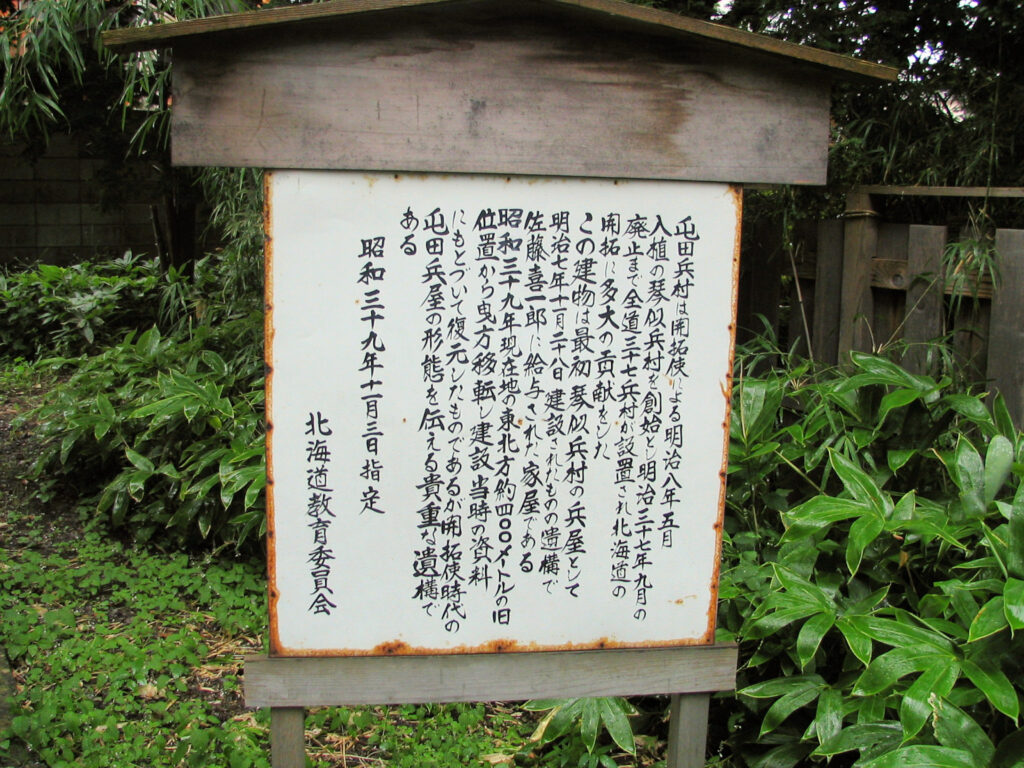 屯田兵村は開拓使による明治八年五月
入植の琴似兵村を創始とし明治三十七年九月の
廃止まで全道三十七兵村が設置され北海道の
開拓に多大の貢献をした
この建物は最初琴似兵村の兵屋として
明治七年十一月二十八日建設されたものの遺構で
佐藤喜一郎に給与された家屋である
昭和三十九年現在地の東北方約四〇〇メートルの旧
位置から曳方移転し建設当時の資料
にもとづいて復元したものであるが開拓使時代の
屯田兵屋の形態を伝える貴重な遺構で
ある
昭和三十九年十一月三日指定
北海道教育委員会